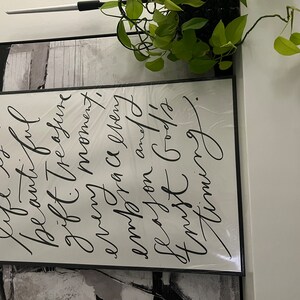 life is a
beautiful
gift. treasure
every moment,
embrace every
season and
trust God's
timing.